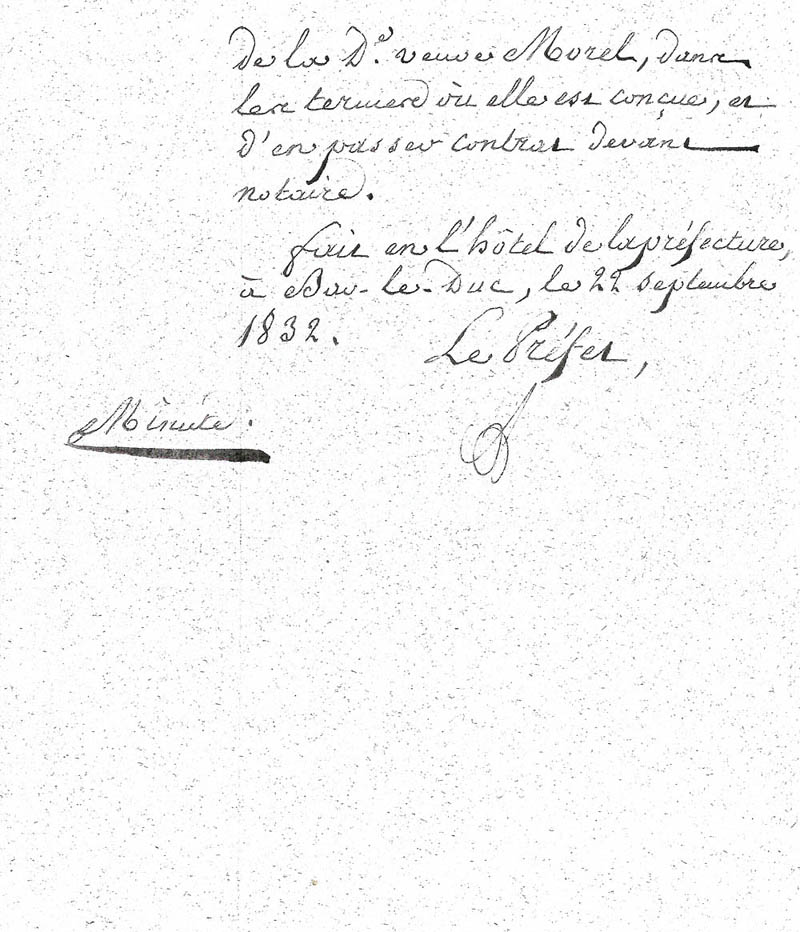 de la D.e veuve Morel, dans
les termes où elle est conçue, et
d'en passer contrat devant
notaire.
fait en l'hôtel de la préfecture,
à Bar-le-Duc, le 22 septembre
1832.
Le Préfet,
Minute.